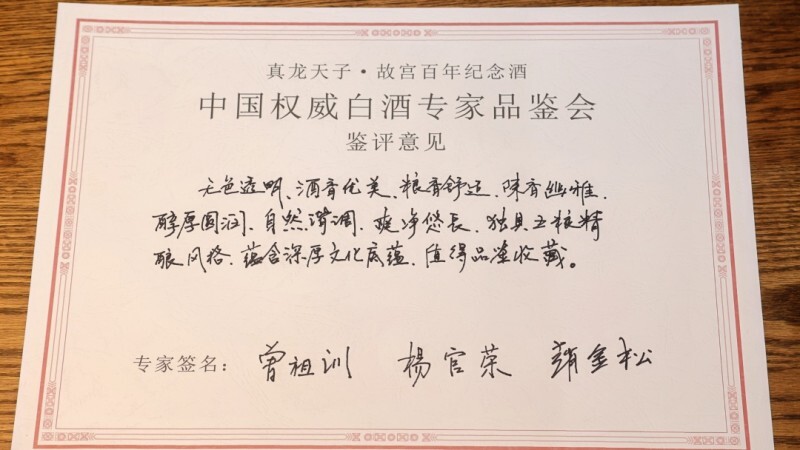 真龙天子·故宫百年纪念酒
中国权威白酒专家品鉴会
鉴评意见
无色透明、酒香优美、粮香舒适、陈香幽雅、
醇厚圆润、自然谐调、爽净悠长、独具五粮精
酿风格、蕴含深厚文化底蕴、值得品鉴收藏。
专家签名： 曾祖训 楊官荣 趙金松